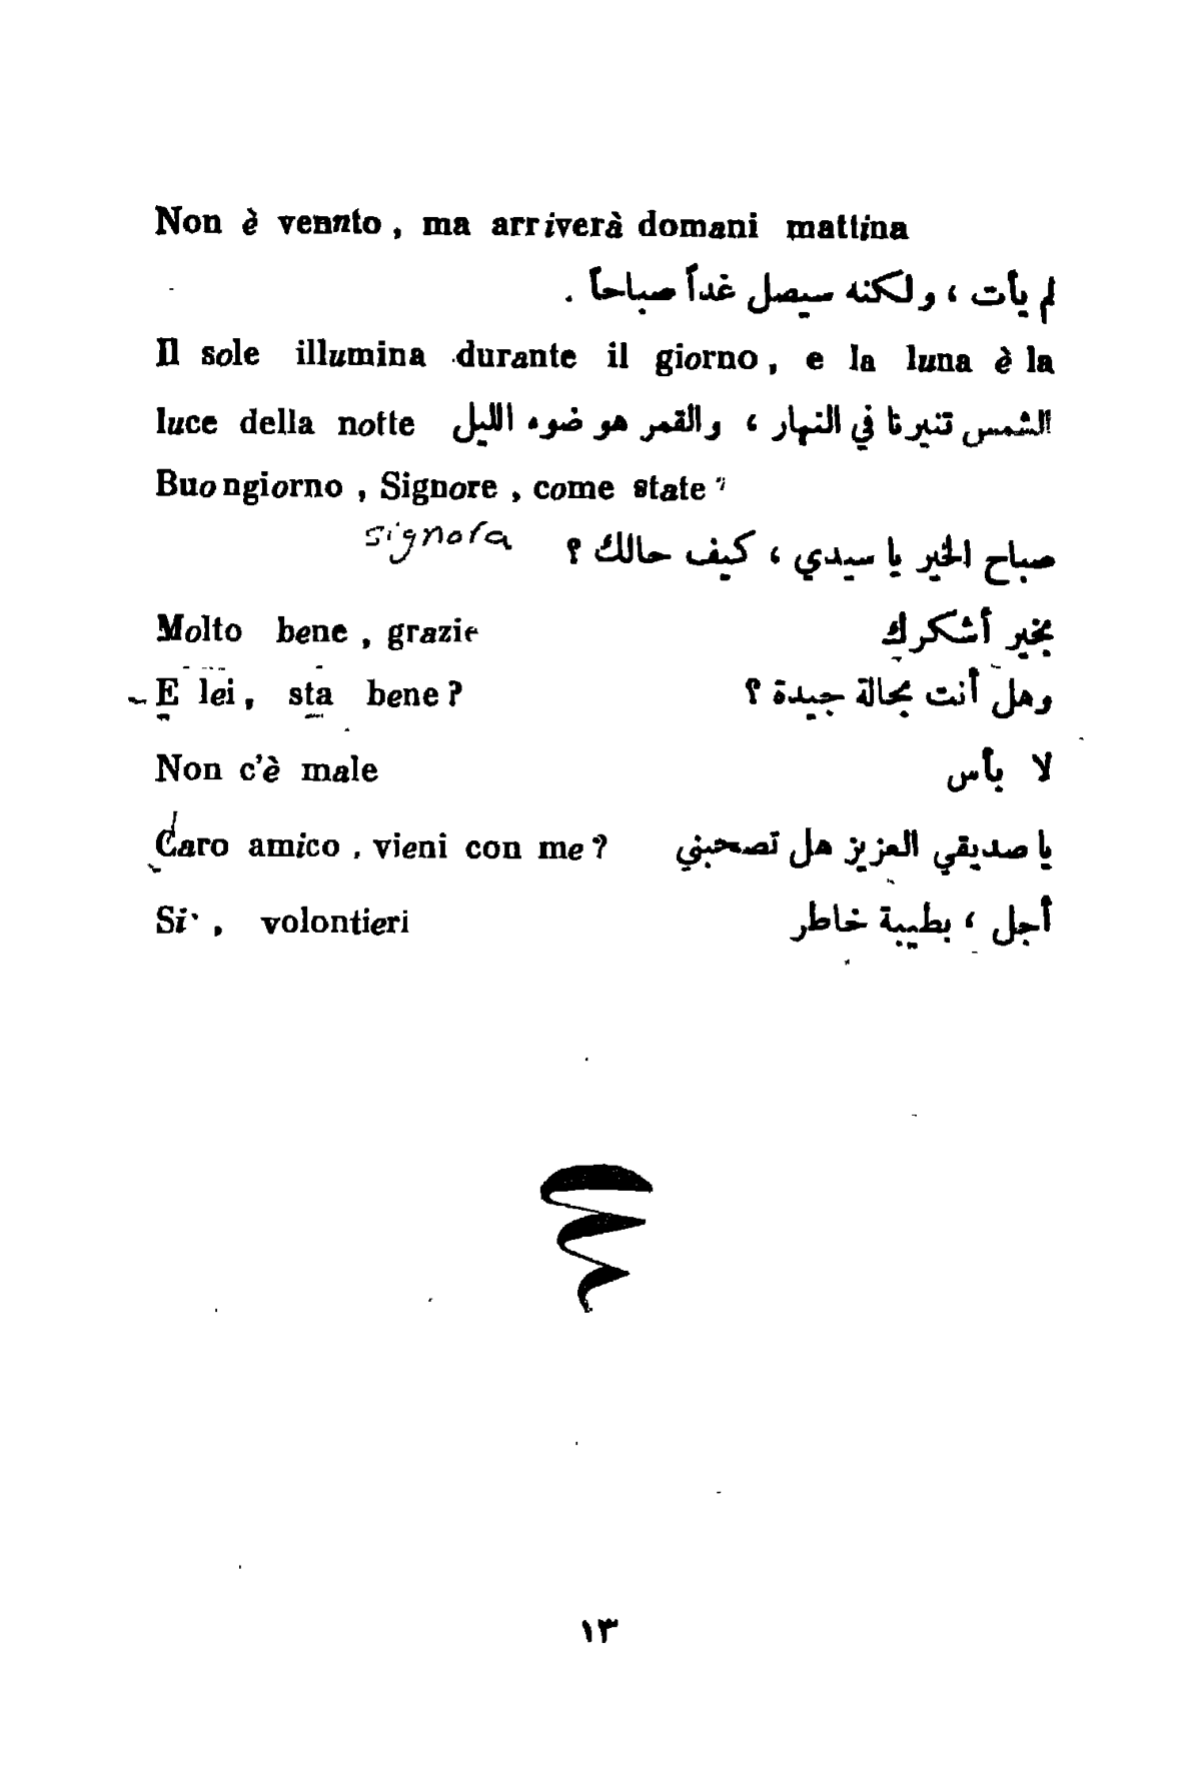 Non è vennto , ma arriverà domani mattina
لم يأت ، ولكنه سيصل غداً صباحاً .
Il sole illumina durante il giorno , e la luna è la
luce della notte الشمس تنيرنا في النهار ، والقمر هو ضوء الليل
Buongiorno , Signore , come state ?
signora صباح الخير يا سيدي ، كيف حالك ؟
Molto bene , grazie بخير أشكرك
E lei , sta bene ? وهل أنت بحالة جيدة ؟
Non c'è male لا بأس
Caro amico , vieni con me ? يا صديقي العزيز هل تصحبني
Si' , volontieri أجل ، بطيبة خاطر
١٣